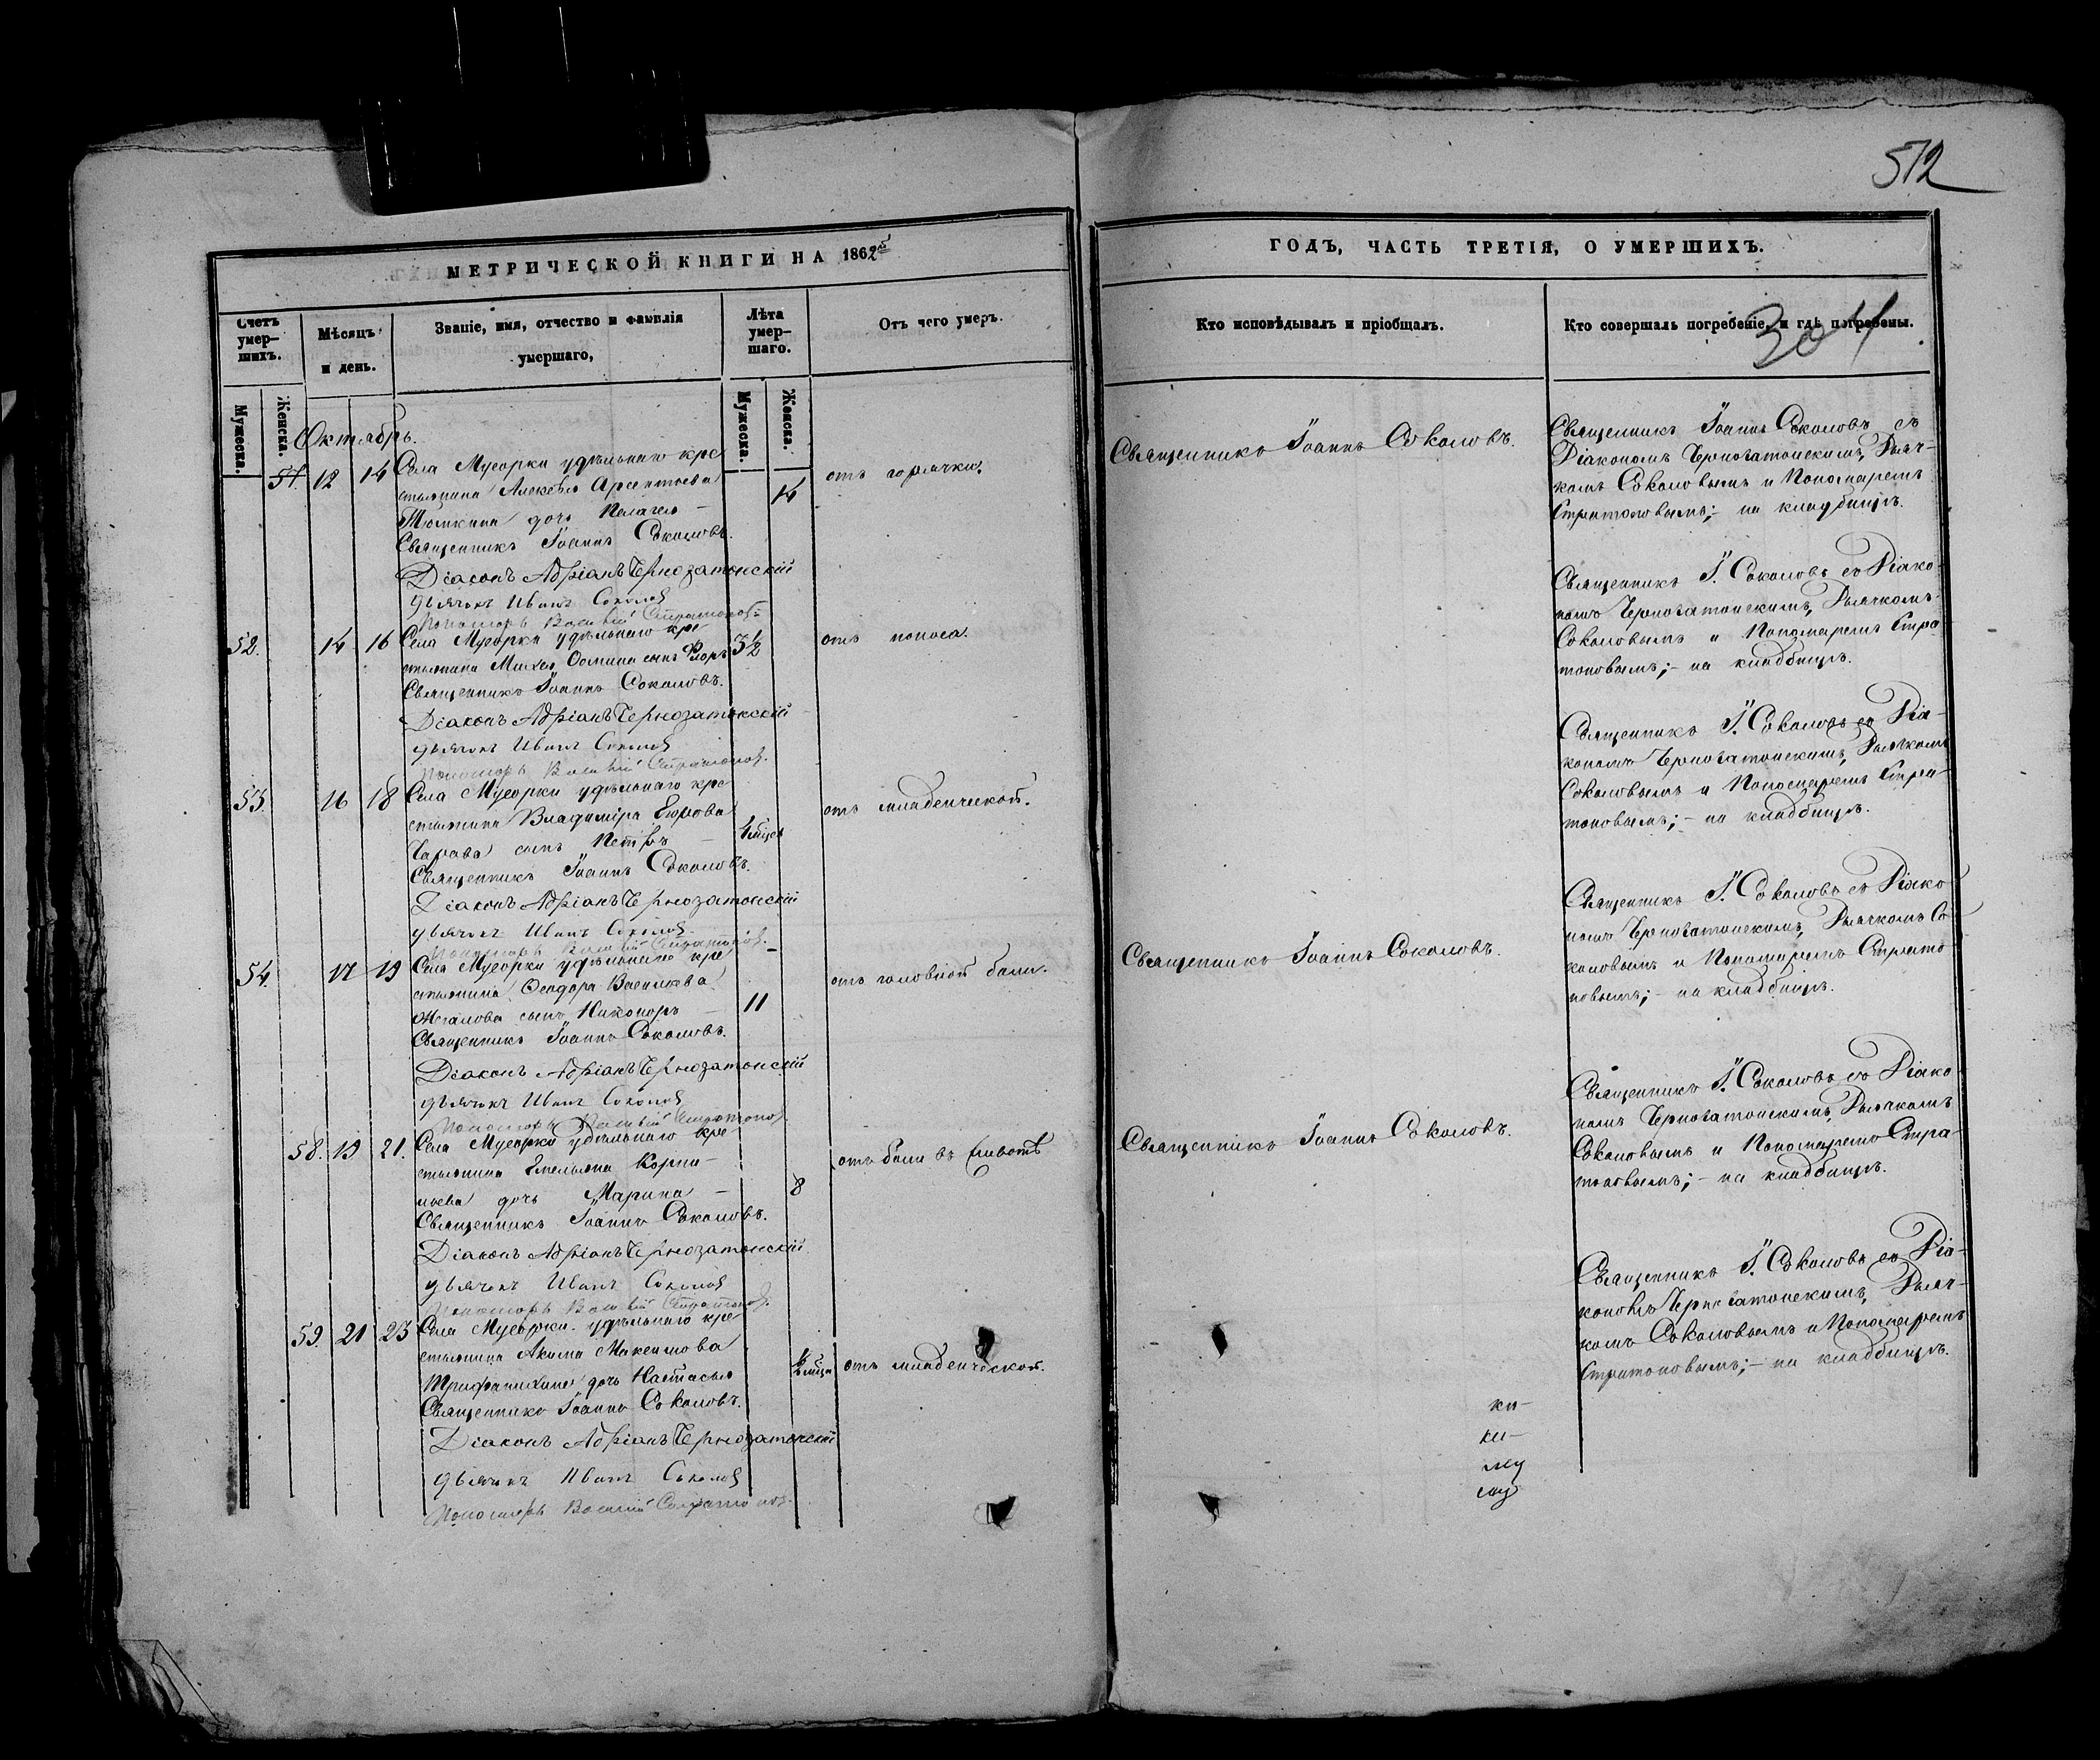 512
МЕТРИЧЕСКОЙ КНИГИ НА 1862й
ГОДЪ, ЧАСТЬ ТРЕТІЯ, О УМЕРШИХЪ.
304
Счетъ умер-шихъ.
Мужеска.
Женска.
Мѣсяцъ и день.
Званіе, имя, отчество и фамилія умершаго,
Лѣта умер-шаго.
Мужеска.
Женска.
Отъ чего умеръ.
Кто исповѣдывалъ и пріобщалъ.
Кто совершалъ погребеніе, и гдѣ погребены.
Октябрь.
12 14 Села Мусорки удѣльнаго кре
стьянина Алексѣя Арсентьева
дочь Пелагея
14
отъ горячки.
Священникъ Іоаннъ Соколовъ.
Діаконъ Адріанъ Чернозатонскій
дьячекъ Иванъ Соколов
Пономарь Василій Стратонов
Священникъ Іоаннъ Соколовъ.
Священникъ Іоаннъ Соколовъ съ
Діакономъ Чернозатонскимъ, Дьяч-
комъ Соколовымъ и Пономаремъ
Стратоновымъ; - на кладбищѣ.
52. 14 16 Села Мусорки удѣльнаго кре
стьянина сынъ
3 1/2
отъ поноса.
Священникъ Іоаннъ Соколовъ.
Діаконъ Адріанъ Чернозатонскій
дьячекъ Иванъ Соколов
Пономарь Василій Стратонов.
Священникъ І. Соколовъ съ Діако
номъ Чернозатонскимъ, Дьячкомъ
Соколовымъ и Пономаремъ Стра
тоновымъ; - на кладбищѣ.
53. 16 18 Села Мусорки удѣльнаго кре
стьянина Владиміра
сынъ Петръ
отъ младенческой.
Священникъ Іоаннъ Соколовъ.
Діаконъ Адріанъ Чернозатонскій
дьячекъ Иванъ Соколов
Пономарь Василій Стратонов.
Священникъ І. Соколовъ съ Діа-
кономъ Чернозатонскимъ, Дьячкомъ
Соколовымъ и Пономаремъ Стра-
тоновымъ; - на кладбищѣ.
54. 17 19 Села Мусорки удѣльнаго кре
стьянина Ѳеодора Васильева
сынъ Никоноръ
11
отъ головной боли.
Священникъ Іоаннъ Соколовъ.
Діаконъ Адріанъ Чернозатонскій
дьячекъ Иванъ Соколов
Пономарь Василій Стратонов
Священникъ Іоаннъ Соколовъ.
Священникъ І. Соколовъ съ Діако
номъ Чернозатонскимъ, Дьячкомъ Со
коловымъ и Пономаремъ Страто
новымъ; - на кладбищѣ.
58. 19 21. Села Мусорки удѣльнаго кре
стьянина Емельяна Корни-
льева дочь Марина
8
отъ боли въ животѣ
Священникъ Іоаннъ Соколовъ.
Діаконъ Адріанъ Чернозатонскій
дьячекъ Иванъ Соколов
Пономарь Василій Стратонов.
Священникъ Іоаннъ Соколовъ.
Священникъ І. Соколовъ съ Діако
номъ Чернозатонскимъ, Дьячкомъ
Соколовымъ и Пономаремъ Стра-
тоновымъ; - на кладбищѣ.
59. 21 23 Села Мусорки удѣльнаго кре
стьянина Акима Максимова
дочь Настасья
отъ младенческой.
Священникъ Іоаннъ Соколовъ.
Діаконъ Адріанъ Чернозатонскій
дьячекъ Иванъ Соколов
Пономарь Василій Стратонов
Священникъ І. Соколовъ съ Діа-
кономъ Чернозатонскимъ, Дьяч-
комъ Соколовымъ и Пономаремъ
Стратоновымъ; - на кладбищѣ.